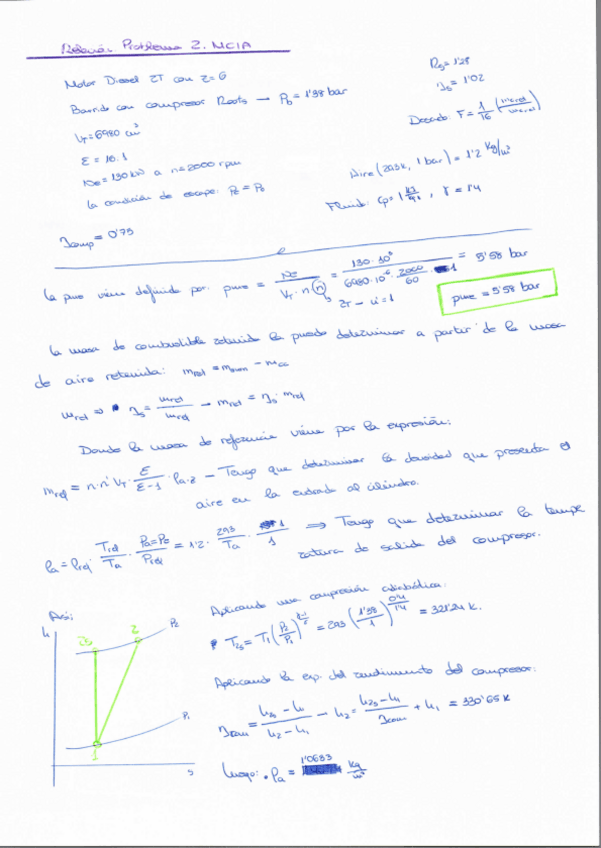 Relación Problema 2. MCIA
Motor Diesel 2T con z=6
Barrido con compresor Roots → Pb = 1'38 bar
VT = 6980 cm³
ε = 16:1
Ne = 130 kW a n = 2000 rpm
La condición de escape: Pe = Po
ηcomp = 0'75
Rs = 1'28
ηs = 1'02
Dosado: F = 1/16
Aire (293K, 1 bar) = 1'2 kg/m³
Fluido: cp = 1 , γ = 1'4
La pme viene definida por: pme = Ne / VT·n·i = 130·10³ / 6980·10⁻⁶ · 2000/60 · 1 = 5'58 bar
2T → i = 1
pme = 5'58 bar
La masa de combustible retenida la puedo determinar a partir de la masa
de aire retenida:
mret ⇒ ηs = mret / mref → mret = ηs · mref
Donde la masa de referencia viene por la expresión:
mref = n·n' VT · ε/ε-1 · ρa·z → Tengo que determinar la densidad que presenta el
aire en la entrada al cilindro.
ρa = ρref · Tref/Ta · Pa=Pe/Pref = 1'2 · 293/Ta · 1/1 ⇒ Tengo que determinar la tempe
ratura de salida del compresor.
Así:
Aplicando una compresión adiabática:
T2s = T1 (P2/P1)^(γ-1/γ) = 293 (1'38/1)^(0'4/1'4) = 321'24 K.
Aplicando la exp. del rendimiento del compresor:
ηcom = h2s - h1 / h2 - h1 → h2 = h2s - h1 / ηcom + h1 = 330'65 K
Luego: ρa = 1'0633 kg/m³
h
2s
2
P2
P1
1
s